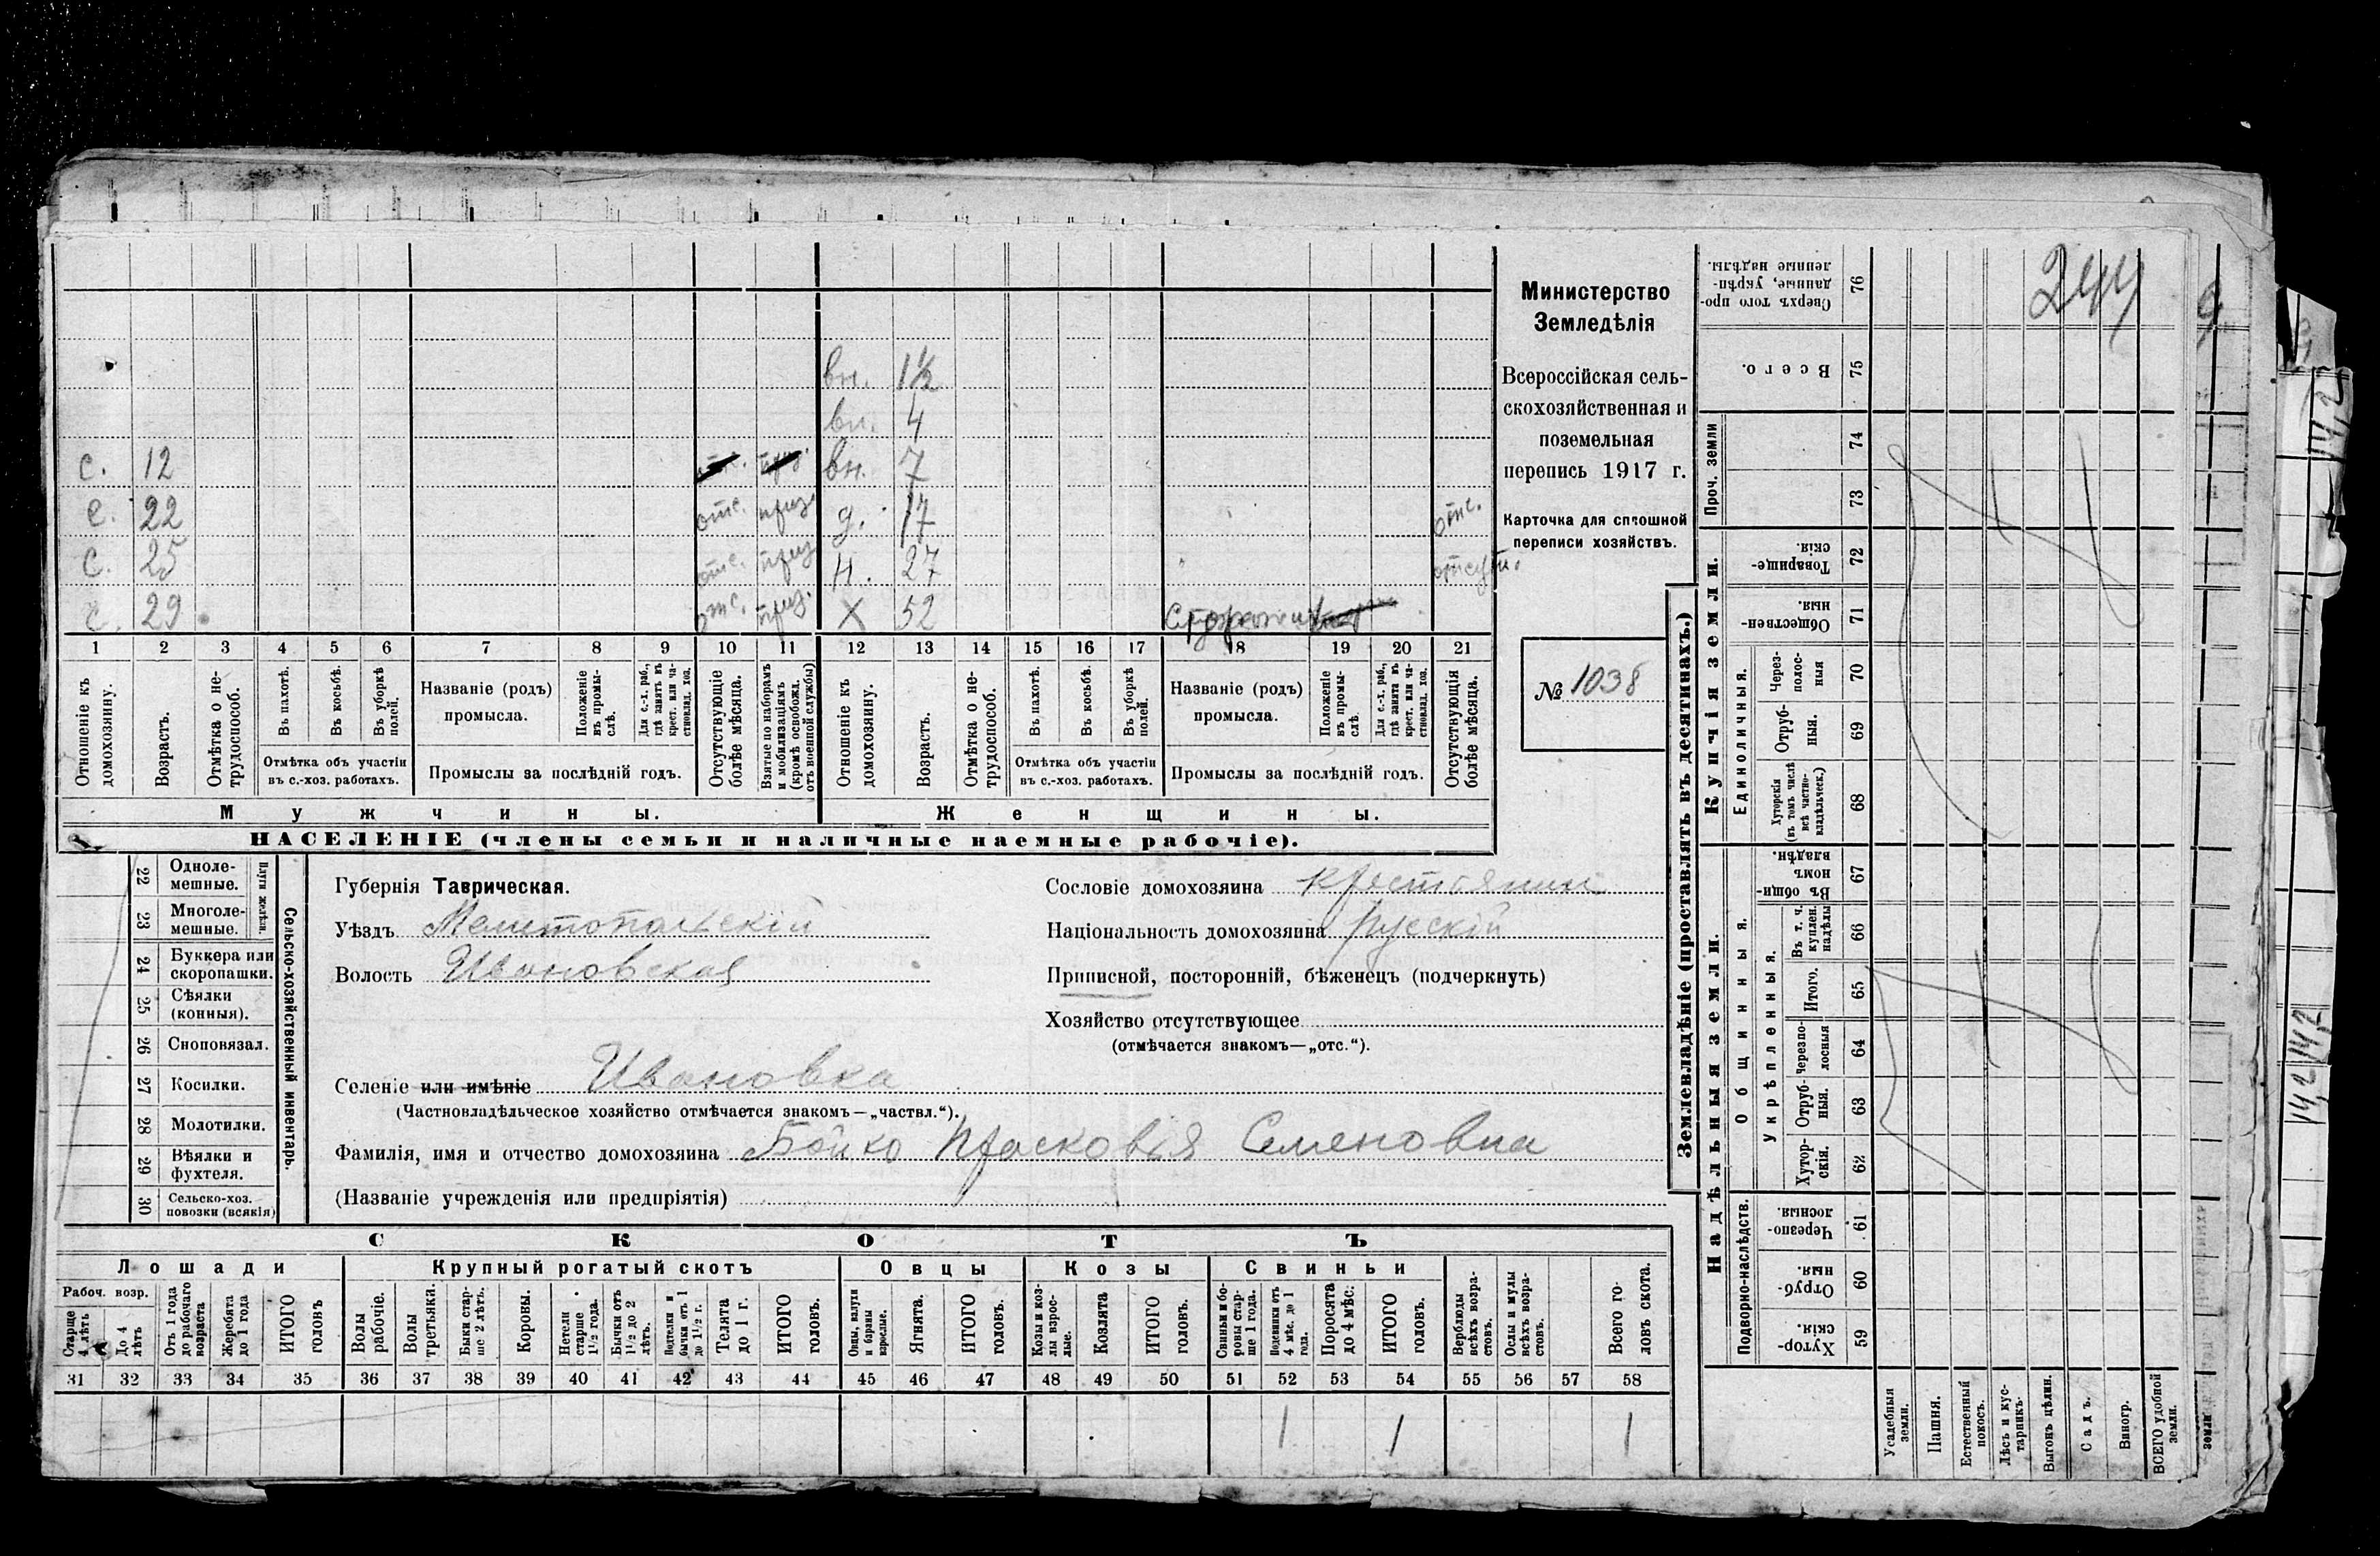 244
Министерство
Земледѣлія
Всероссійская сель-
скохозяйственная и
поземельная
перепись 1917 г.
Карточка для сплошной
переписи хозяйствъ.
№ 1038
вн. 1½
вн. 4
с. 12 вн. 7
с. 22 отс. приз. д. 17 отс.
с. 25 отс. приз. н. 27 отсут.
с. 29 отс. приз. Х 52
1 2 3 4 5 6 7 8 9 10 11 12 13 14 15 16 17 18 19 20 21
Отношеніе къ домохозяину.
Возрастъ.
Отмѣтка о не-трудоспособ.
Въ пахотѣ.
Въ косьбѣ.
Въ уборкѣ полей.
Отмѣтка объ участіи
въ с.-хоз. работахъ.
Названіе (родъ)
промысла.
Положеніе въ промы-слѣ.
Для с.-х. раб., гдѣ занятъ въ крест. или ча-стновлад. хоз.
Промыслы за послѣдній годъ.
Отсутствующіе болѣе мѣсяца.
Взятые по наборамъ и мобилизаціямъ (кромѣ освобожд. отъ военной службы)
Отношеніе къ домохозяину.
Возрастъ.
Отмѣтка о не-трудоспособ.
Въ пахотѣ.
Въ косьбѣ.
Въ уборкѣ полей.
Отмѣтка объ участіи
въ с.-хоз. работахъ.
Названіе (родъ)
промысла.
Положеніе въ промы-слѣ.
Для с.-х. раб., гдѣ занята въ крест. или ча-стновлад. хоз.
Промыслы за послѣдній годъ.
Отсутствующія болѣе мѣсяца.
Мужчины. Женщины.
НАСЕЛЕНІЕ (члены семьи и наличные наемные рабочіе).
Сельско-хозяйственный инвентарь.
Плуги желѣзн.
22 Одноле-мешные.
23 Многоле-мешные.
24 Буккера или скоропашки.
25 Сѣялки (конныя).
26 Сноповязал.
27 Косилки.
28 Молотилки.
29 Вѣялки и фухтеля.
30 Сельско-хоз. повозки (всякія)
Губернія Таврическая.
Уѣздъ Мелитопольскій
Волость Ивановская
Сословіе домохозяина крестьянин
Національность домохозяина Русскій
Приписной, посторонній, бѣженецъ (подчеркнуть)
Хозяйство отсутствующее
(отмѣчается знакомъ—„отс.“).
Селеніе или имѣніе Ивановка
(Частновладѣльческое хозяйство отмѣчается знакомъ—„частвл.“).
Фамилія, имя и отчество домохозяина Бойко Прасковія Семеновна
(Названіе учрежденія или предпріятія)
СКОТЪ
Лошади Крупный рогатый скотъ Овцы Козы Свиньи
Рабоч. возр.
Старше 4 лѣтъ
До 4 лѣтъ
Отъ 1 года до рабочаго возраста
Жеребята до 1 года
ИТОГО головъ
Волы рабочіе.
Волы третьяки.
Быки стар-ше 2 лѣтъ.
Коровы.
Нетели старше 1½ года.
Бычки отъ 1½ до 2 лѣтъ.
Подтелки и бычки отъ 1 до 1½ г.
Телята до 1 г.
ИТОГО головъ.
Овцы, валухи и бараны взрослые.
Ягнята.
ИТОГО головъ.
Козы и коз-лы взрос-лые.
Козлята
ИТОГО головъ.
Свиньи и бо-ровы стар-ше 1 года.
Подсвинки отъ 4 мѣс. до 1 года.
Поросята до 4 мѣс.
ИТОГО головъ.
Верблюды всѣхъ возра-стовъ.
Ослы и мулы всѣхъ возра-стовъ.
Всего го-ловъ скота.
31 32 33 34 35 36 37 38 39 40 41 42 43 44 45 46 47 48 49 50 51 52 53 54 55 56 57 58
1 1 1
Землевладѣніе (проставлять въ десятинахъ.)
Купчія земли.
Надѣльныя земли.
76 Сверхъ того про-данные, укрѣп-ленные надѣлы.
75 Всего.
Проч. земли
74
73
72 Товарище-скія.
71 Обществен-ныя.
Единоличныя.
70 Через-полос-ныя
69 Отруб-ныя.
68 Хуторскія (въ томъ числѣ всѣ частно-владѣльческ.)
Общинныя.
67 Въ общи-номъ владѣн.
Укрѣпленныя.
66 Въ т. ч. куплен. надѣлы
65 Итого.
64 Черезпо-лосныя
63 Отруб-ныя.
62 Хутор-скія.
Подворно-наслѣдств.
61 Черезпо-лосныя.
60 Отруб-ныя.
59 Хутор-скія.
Усадебныя земли.
Пашня.
Естественный покосъ.
Лѣсъ и кус-тарникъ.
Выгонъ цѣлин.
Садъ.
Виногр.
ВСЕГО удобной земли.